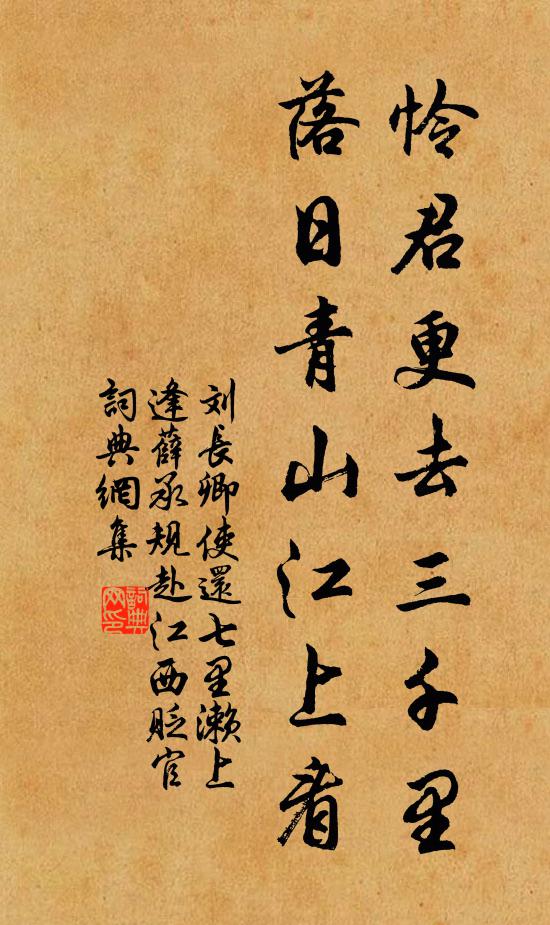 怜君更去三千里
落日青山江上看
刘长卿使還七里濑上
逢薛承规赴江西貶官
詞典網集
詞典網印